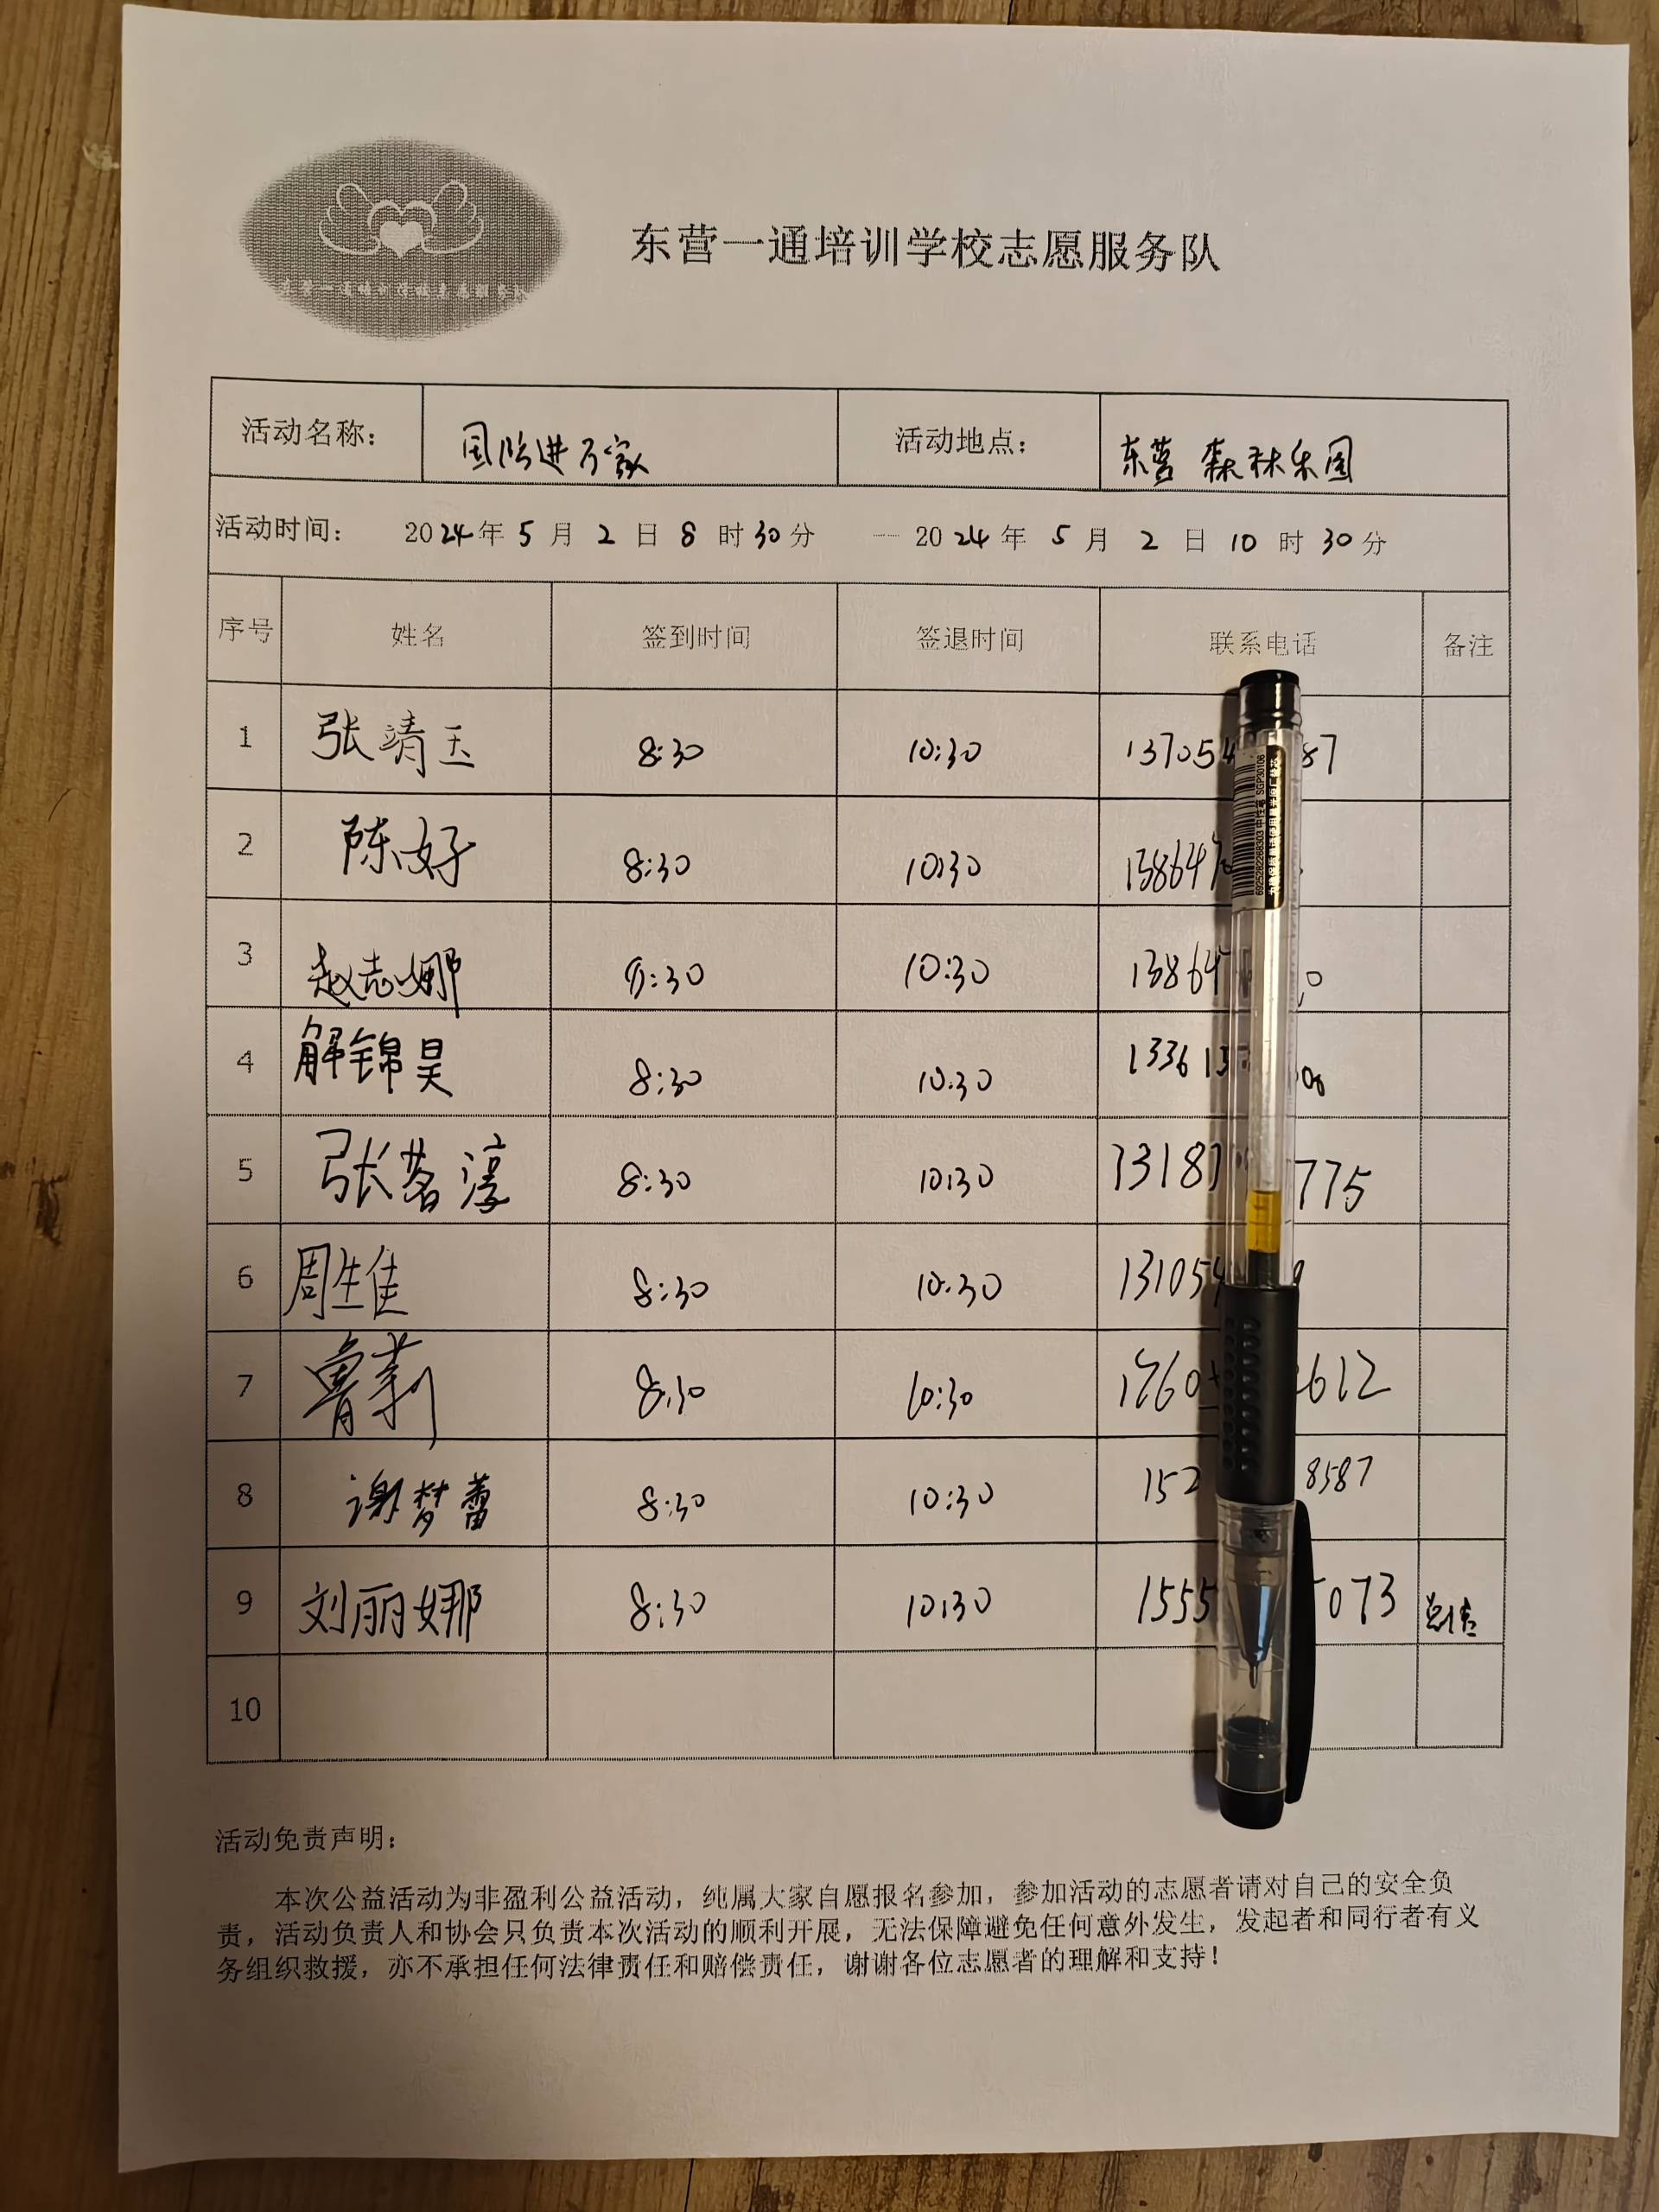 东营一通培训学校志愿服务队
活动名称: 国防进万家 活动地点: 东营 森林乐园
活动时间: 2024年5月2日8时30分 — 2024年5月2日10时30分
序号 姓名 签到时间 签退时间 联系电话 备注
1 张靖玉 8:30 10:30 137054 87
2 陈好 8:30 10:30 138647
3 赵志娜 8:30 10:30 13864 0
4 解锦昊 8:30 10:30 133613
5 张茗淳 8:30 10:30 13187 775
6 周生佳 8:30 10:30 131054
7 鲁莉 8:30 10:30 1760 612
8 谢梦蕾 8:30 10:30 152 8587
9 刘丽娜 8:30 10:30 1555 073
10
6925282268303 中性笔 SGP30106
活动免责声明:
本次公益活动为非盈利公益活动，纯属大家自愿报名参加，参加活动的志愿者请对自己的安全负
责，活动负责人和协会只负责本次活动的顺利开展，无法保障避免任何意外发生，发起者和同行者有义
务组织救援，亦不承担任何法律责任和赔偿责任，谢谢各位志愿者的理解和支持！